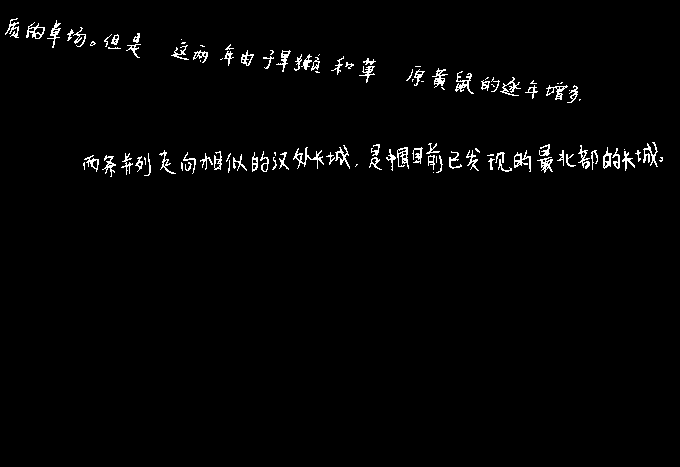 质的草场。但是 这两年由于旱獭和草 原黄鼠的逐年增多.
两条并列走向相似的汉外长城,是中国目前已发现的最北部的长城。